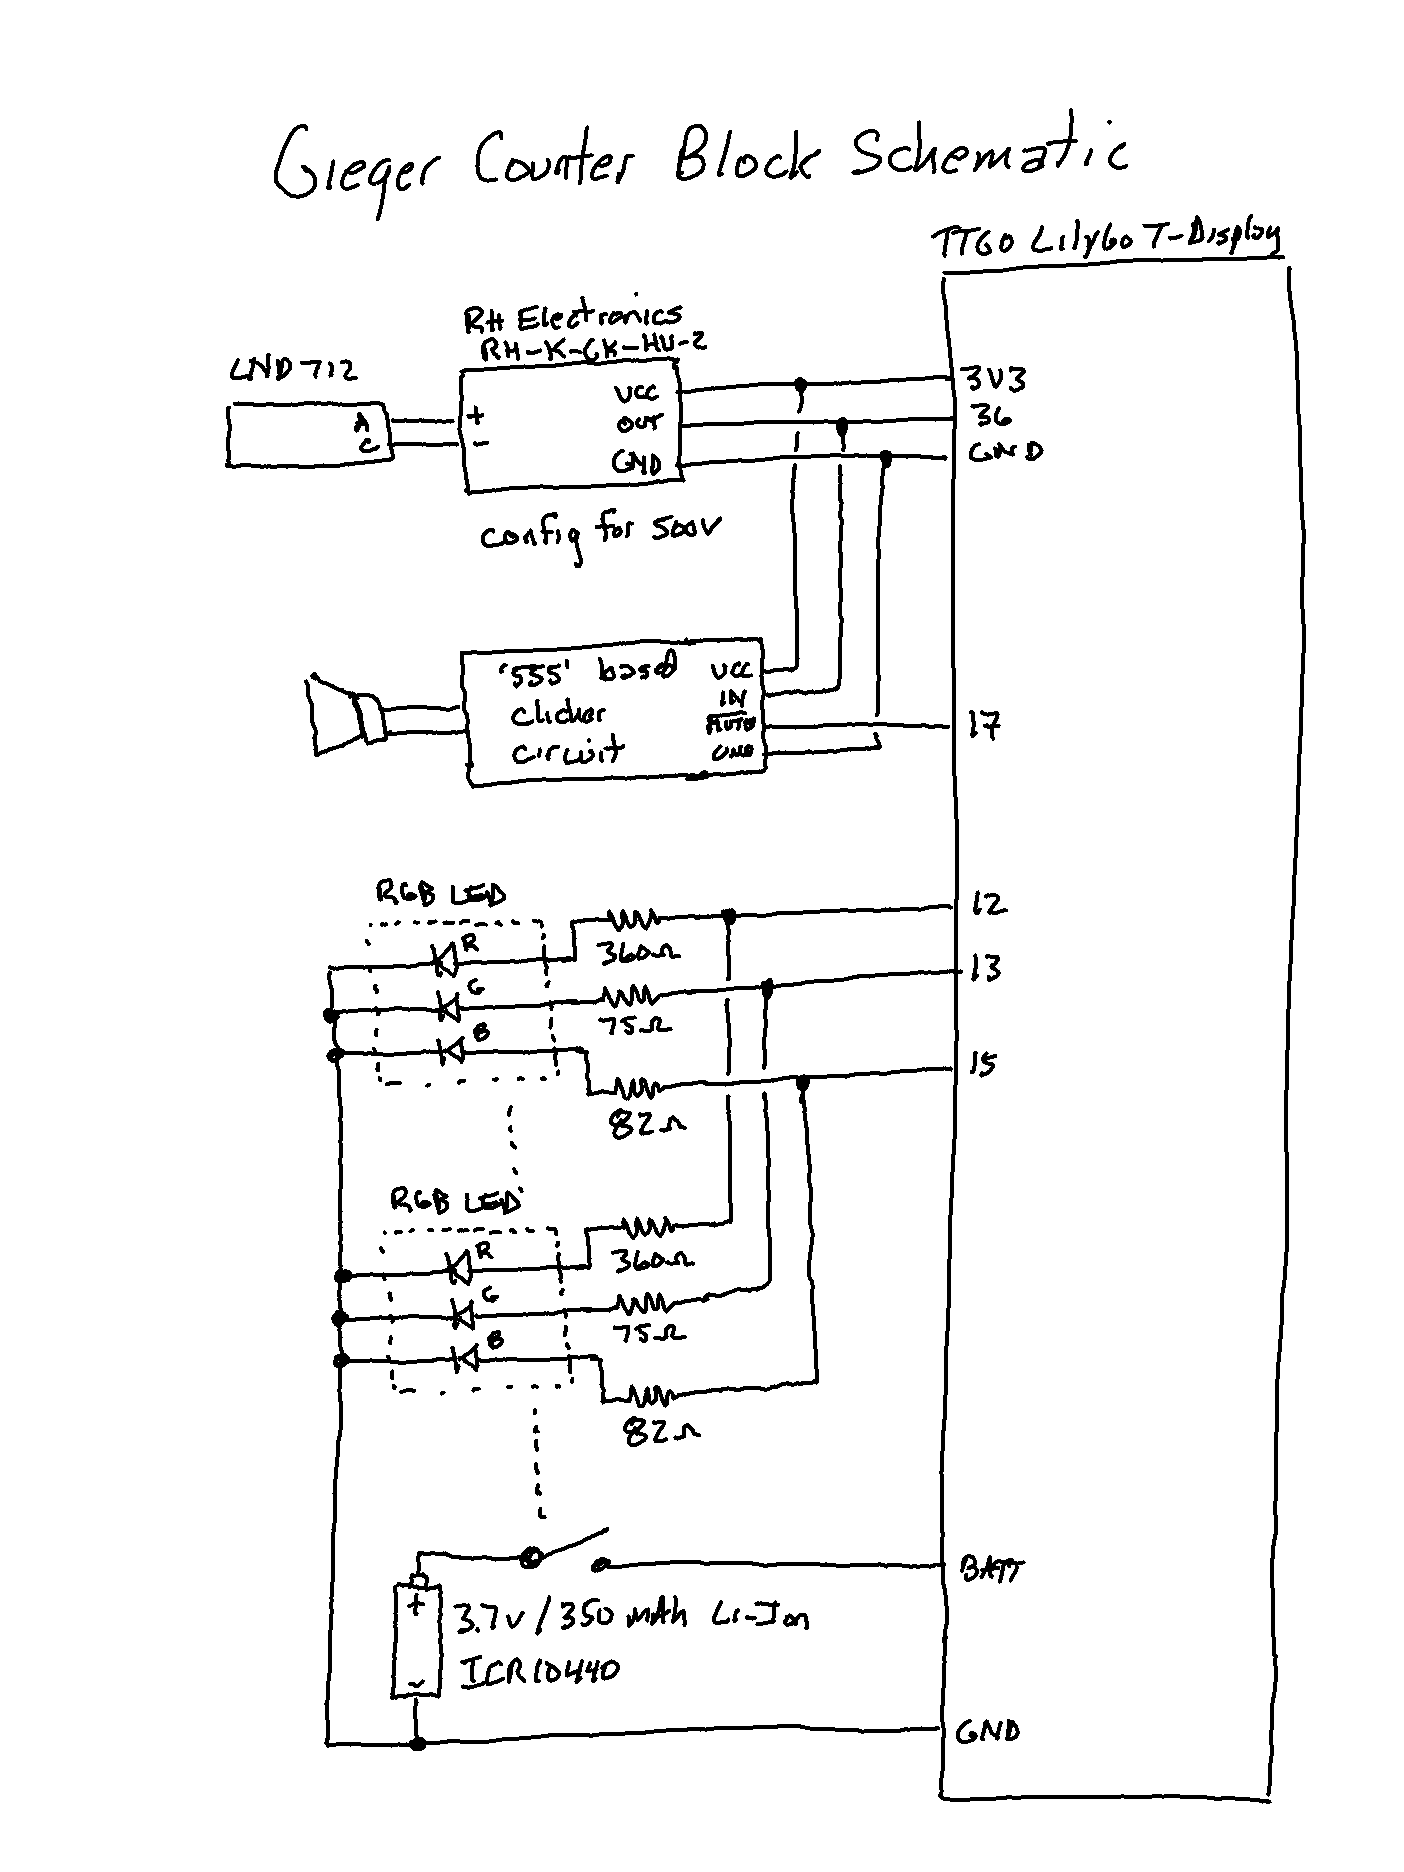 Gieger Counter Block Schematic
TTGO LilyGo T-Display
RH Electronics
RH-K-GK-HV-2
LND 712
A
C
+
-
VCC
OUT
GND
3V3
36
GND
config for 500V
'555' based
clicker
circuit
VCC
IN
MUTE
GND
17
RGB LED
R
G
B
360Ω
75Ω
82Ω
12
13
15
RGB LED
R
G
B
360Ω
75Ω
82Ω
BATT
+
-
3.7V/350 mAh Li-Ion
ICR10440
GND